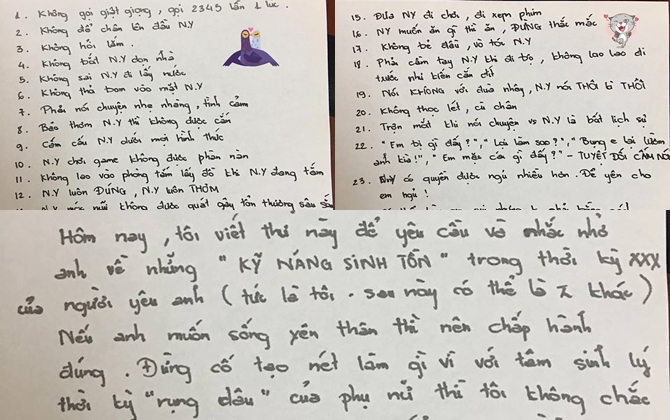 1. Không gọi giật giọng, gọi 2345 lần 1 lúc.
2. Không để chân lên đầu N.Y
3. Không hỏi lắm.
4. Không bắt N.Y dọn nhà
5. Không sai N.Y đi lấy nước
6. Không thả bom vào mặt N.Y
7. Phải nói chuyện nhẹ nhàng, tình cảm
8. Bảo thơm N.Y thì không được cắn
9. Cấm cấu N.Y dưới mọi hình thức
10. N.Y chơi game không được phàn nàn
11. Không lao vào phòng tắm lấy đồ khi N.Y đang tắm
12. N.Y luôn ĐÚNG, N.Y luôn THƠM
không được quát gây tổn thương sâu sắc
15. Đưa NY đi chơi, đi xem phim
16. NY muốn ăn gì thì ăn, ĐỪNG thắc mắc
17. Không bẻ đầu, vò tóc N.Y
18. Phải cầm tay N.Y khi đi bộ, không lao lao đi
trước như kiểu cần đi
19. Nói KHÔNG với đùa nhây, N.Y nói THÔI là THÔI
20. Không thọc lét, cù chân
21. Trợn mắt khi nói chuyện vs N.Y là bất lịch sự
22. "Em bị gì đấy?", "Lại làm sao?", "Bụng e lại lườm
anh kìa!", "Em mặc cái gì đấy?" - TUYỆT ĐỐI CẤM NÓI
23. NY có quyền được ngủ nhiều hơn. Để yên cho
em ngủ!
Hôm nay, tôi viết thư này để yêu cầu và nhắc nhở
anh về những "KỸ NĂNG SINH TỒN" trong thời kỳ XXX
của người yêu anh (tức là tôi. sau này có thể là khác)
Nếu anh muốn sống yên thân thì nên chấp hành
đúng. Đừng cố tạo nét làm gì vì với tâm sinh lý
thời kỳ "rụng dâu" của phụ nữ thì tôi không chắc